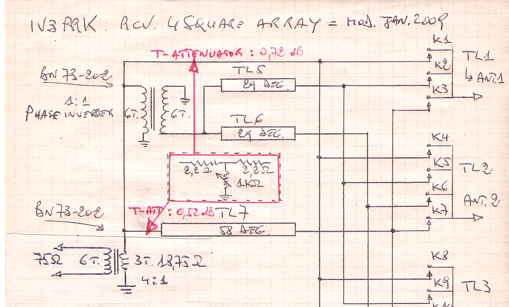 IV3PRK. RCV. 4 SQUARE ARRAY = MOD. JAN. 2009
T-ATTENUATOR: 0,72 dB
K1
BN 73-202
TL5
29 DEG.
K2
TL1
↳ ANT.1
K3
1:1
PHASE INVERTER
6T.
6T.
TL6
29 DEG.
K4
2,2Ω
2,2Ω
1KΩ
K5
TL2
K6
ANT.2
K7
BN 73-202
T-ATT: 0,52 dB
TL7
58 DEG.
75Ω
6T.
3T. 18,75Ω
4:1
K8
TL3
K9